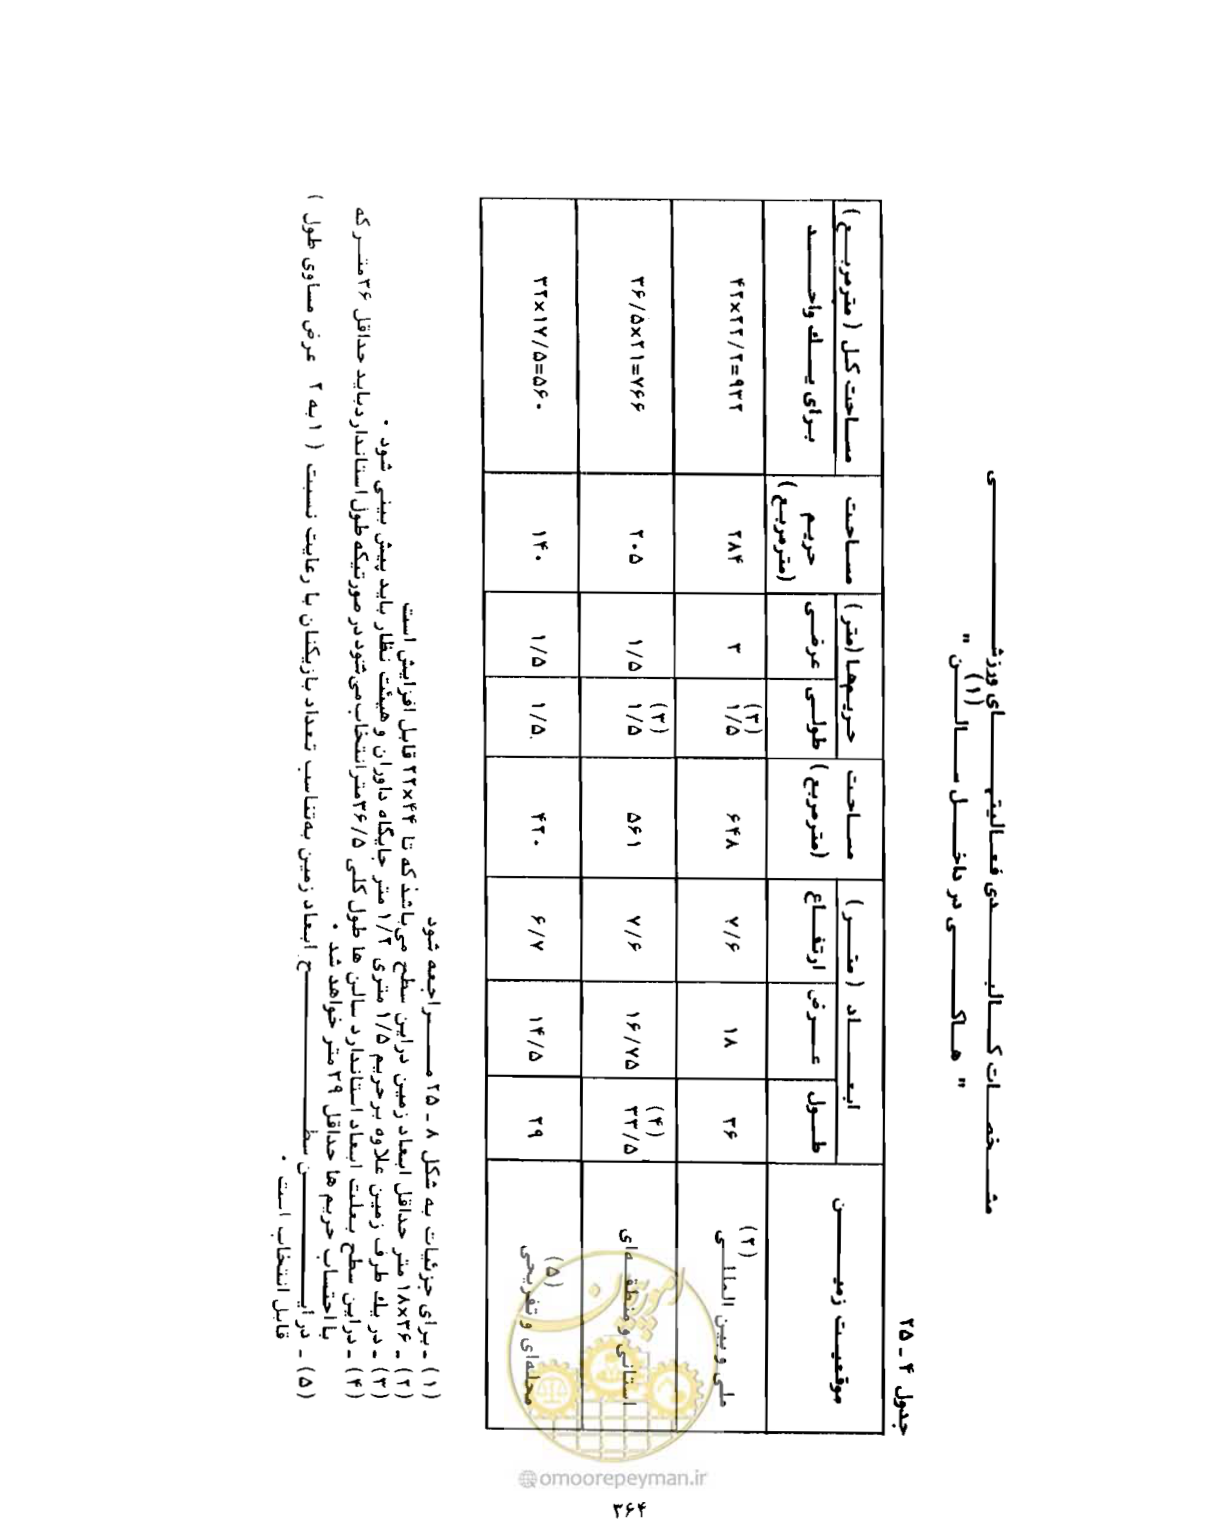 مشخصات کالبدی فعالیتهای ورزشی
" هاکی در داخل سالن (۱) "
جدول ۴ ـ ۲۵
موقعیت زمین | ابعاد (متر) | مساحت (مترمربع) | حریم‌ها (متر) | مساحت حریم (مترمربع) | مساحت کل (مترمربع) برای یک واحد
طول | عرض | ارتفاع | طولی | عرضی
ملی و بین المللی (۲) | ۳۶ | ۱۸ | ۷/۶ | ۶۴۸ | ۱/۵ (۳) | ۳ | ۲۸۴ | ۴۲x۲۲/۲=۹۳۲
استانی و منطقه‌ای | ۳۳/۵ (۴) | ۱۶/۷۵ | ۷/۶ | ۵۶۱ | ۱/۵ (۳) | ۱/۵ | ۲۰۵ | ۳۶/۵x۲۱=۷۶۶
محله‌ای و تفریحی (۵) | ۲۹ | ۱۴/۵ | ۶/۷ | ۴۲۰ | ۱/۵ | ۱/۵ | ۱۴۰ | ۳۲x۱۷/۵=۵۶۰
(۱) ـ برای جزئیات به شکل ۸ ـ ۲۵ مراجعه شود
(۲) ـ ۱۸x۳۶ متر حداقل ابعاد زمین دراین سطح می‌باشد که تا ۲۲x۴۴ قابل افزایش است
(۳) ـ در یک طرف زمین علاوه بر حریم ۱/۵ متری ۱/۲ متر جایگاه داوران و هیئت نظار باید پیش بینی شود .
(۴) ـ دراین سطح بعلت ابعاد استاندارد سالن ها طول کلی ۳۶/۵ متر انتخاب می‌شود در صورتیکه طول استاندارد باید حداقل ۳۶ متر که
با احتساب حریم ها حداقل ۳۹ متر خواهد شد .
(۵) ـ در این سطح ابعاد زمین به‌تناسب تعداد بازیکنان با رعایت نسبت ( ۱ به ۲ عرض مساوی طول )
قابل انتخاب است .
امور پیمان
omoorepeyman.ir
۳۶۴